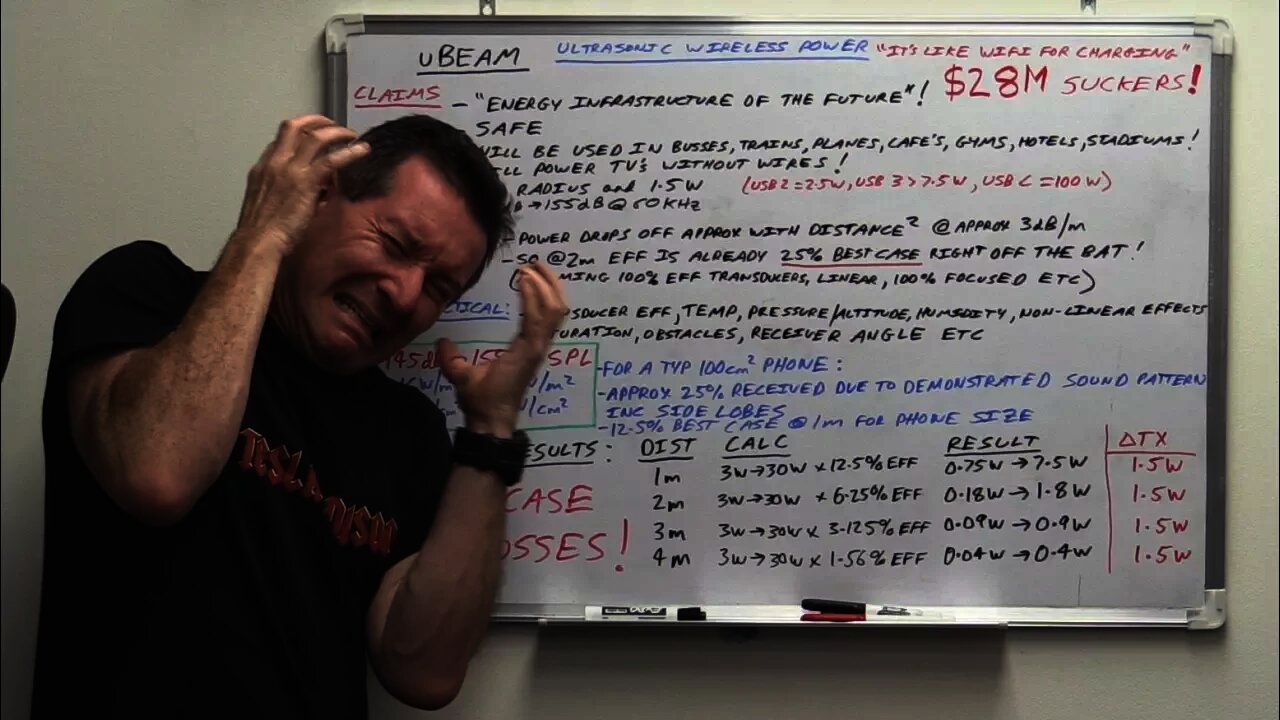 uBEAM ULTRASONIC WIRELESS POWER "IT'S LIKE WIFI FOR CHARGING"
$28M SUCKERS!
CLAIMS - "ENERGY INFRASTRUCTURE OF THE FUTURE"!
SAFE
BE USED IN BUSSES, TRAINS, PLANES, CAFE'S, GYMS, HOTELS, STADIUMS!
POWER TV's WITHOUT WIRES!
RADIUS and 1.5W (USB2 = 2.5W, USB 3 > 7.5W, USB C = 100W)
→ 155dB @ 60KHz
- POWER DROPS OFF APPROX WITH DISTANCE² @ APPROX 3dB/m
- SO @ 2m EFF IS ALREADY 25% BEST CASE RIGHT OFF THE BAT!
100% EFF TRANSDUKERS, LINEAR, 100% FOCUSED ETC)
EFF, TEMP, PRESSURE/ALTITUDE, HUMIDITY, NON-LINEAR EFFECTS
OBSTACLES, RECEIVER ANGLE ETC
145dB SPL
/m²
/cm²
- FOR A TYP 100cm² PHONE:
- APPROX 25% RECEIVED DUE TO DEMONSTRATED SOUND PATTERN
INC SIDE LOBES
- 12.5% BEST CASE @ 1m FOR PHONE SIZE
DIST CALC RESULT ΔTX
1m 3W→30W x 12.5% EFF 0.75W→7.5W 1.5W
2m 3W→30W x 6.25% EFF 0.18W→1.8W 1.5W
3m 3W→30W x 3.125% EFF 0.09W→0.9W 1.5W
4m 3W→30W x 1.56% EFF 0.04W→0.4W 1.5W
CASE